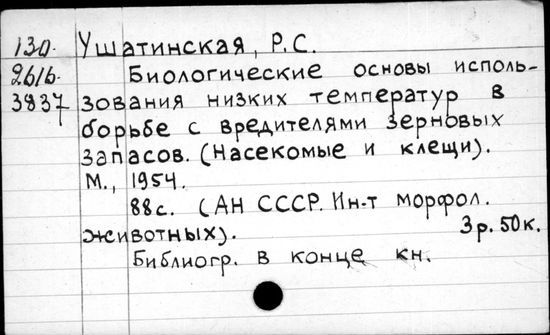 130. Ушатинская, Р.С.
2616. Биологические основы исполь-
3837 зования низких температур в
борьбе с вредителями зерновых
запасов. (Насекомые и клещи).
М., 1954.
88с. (АН СССР. Ин-т морфол.
животных). 3р. 50к.
Библиогр. в конце кн.